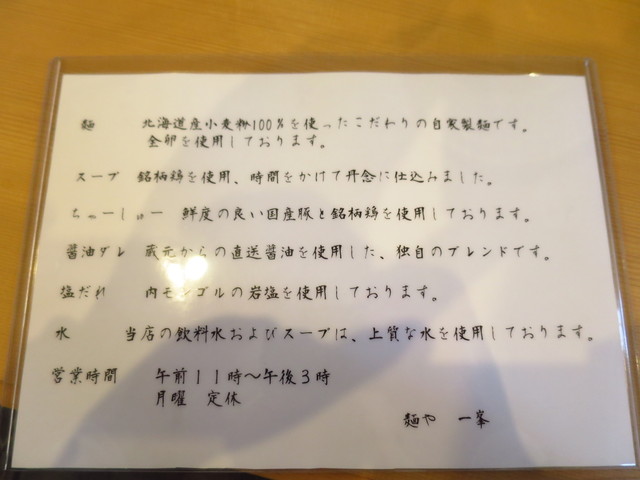 麺　北海道産小麦粉100％を使ったこだわりの自家製麺です。
全卵を使用しております。
スープ　銘柄鶏を使用、時間をかけて丹念に仕込みました。
ちゅーしゅー　鮮度の良い国産豚と銘柄鶏を使用しております。
醤油ダレ　蔵元からの直送醤油を使用した、独自のブレンドです。
塩だれ　内モンゴルの岩塩を使用しております。
水　当店の飲料水およびスープは、上質な水を使用しております。
営業時間　午前１１時～午後３時
月曜　定休
麺や　一峯